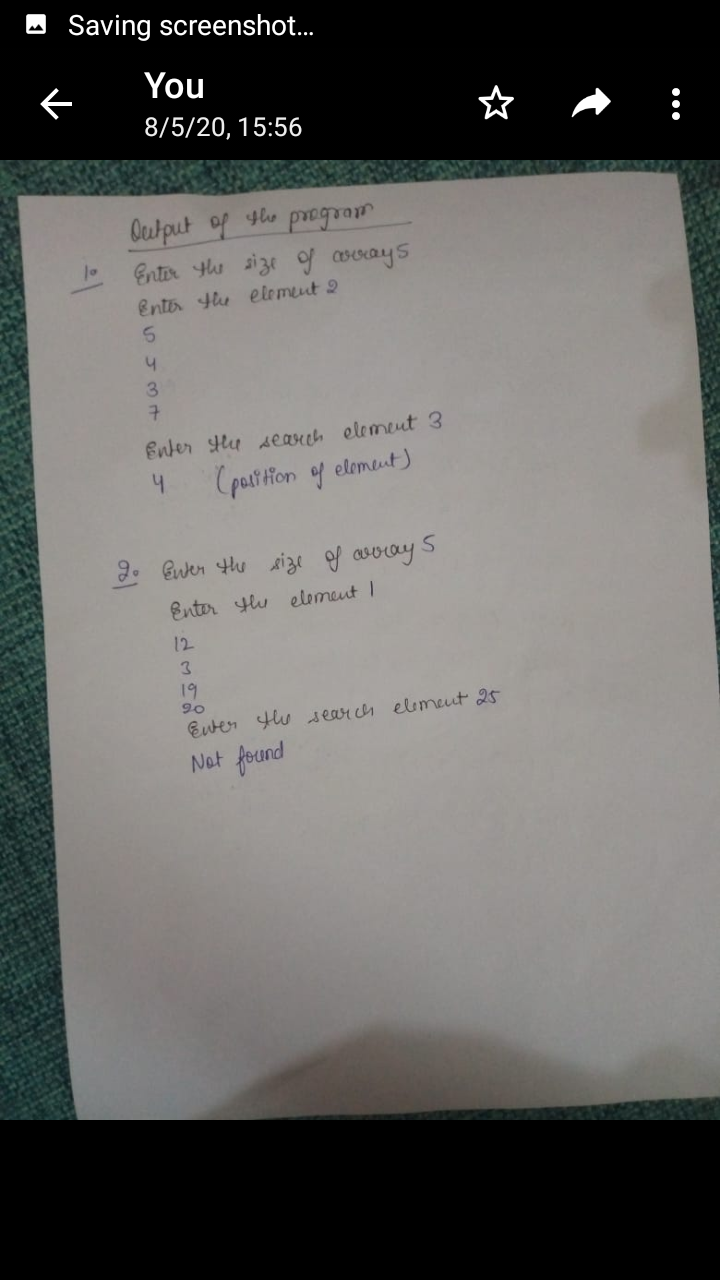 Saving screenshot...
You
8/5/20, 15:56
Output of the program
1. Enter the size of array 5
Enter the element 2
5
4
3
7
Enter the search element 3
4 (position of element)
2. Enter the size of array 5
Enter the element 1
12
3
19
20
Enter the search element 25
Not found